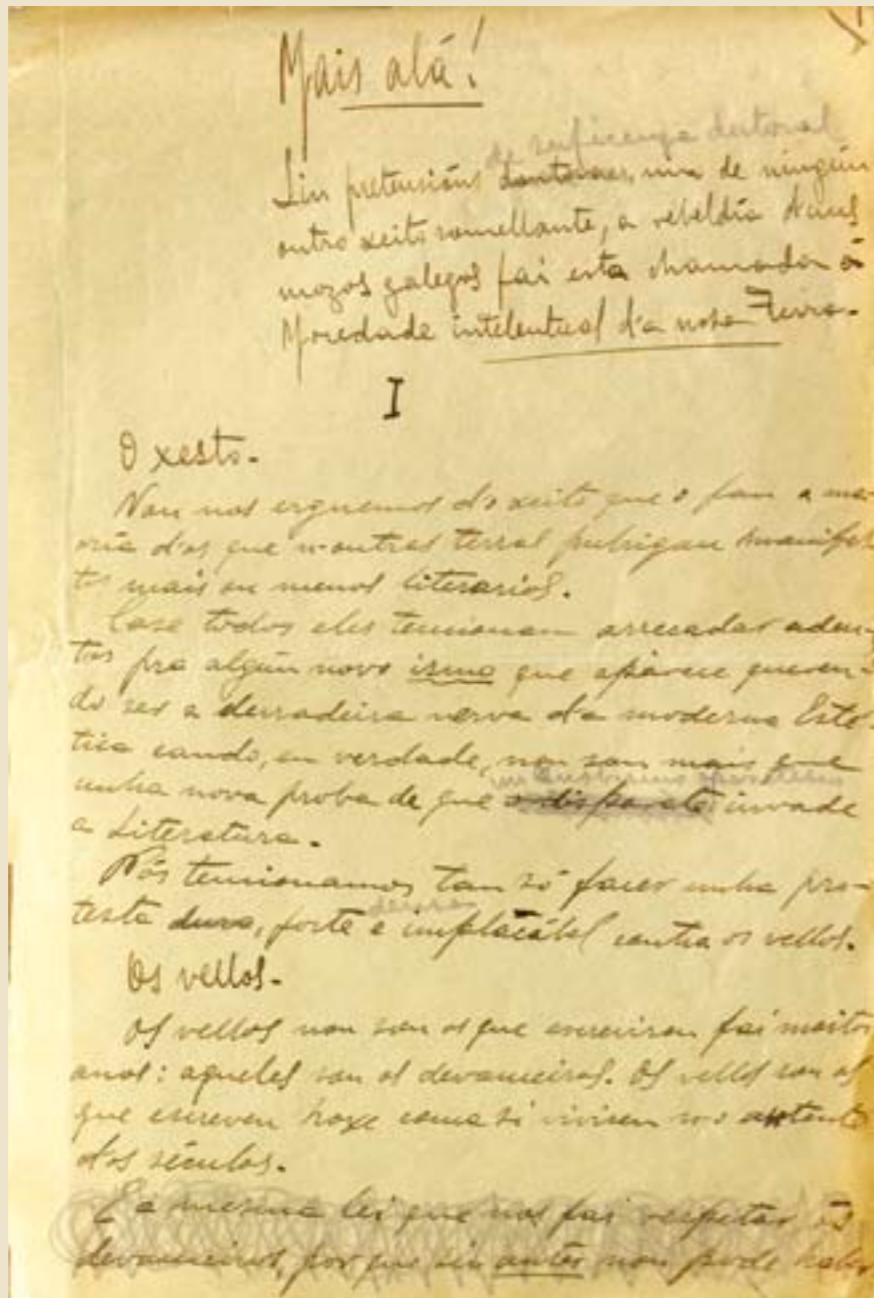 Mais alá!
de suficenza doutoral
Sin pretensións nin de ningún
outro xeito somellante, a rebeldía d'uns
mozos galegos fai esta chamada á
Mocedade inteleutual d'a nosa Terra.
I
O xesto.
Non nos erguemos d'o xeito que o fan a mai-
oría d'os que n-outras terras pubrigan manifes-
tos mais ou menos literarios.
Case todos eles tencionan arrecadar adeu-
tos pra algún novo ismo que aparece queren-
do ser a derradeira nerva d'a moderna Esté-
tica cando, en verdade, non son mais que
unha nova proba de que o disparate invade
a Literatura.
Nós tencionamos tan só facer unha pro-
testa dura, forte e implacábel contra os vellos.
Os vellos.
Os vellos non son os que escreviron fai moitos
anos: aqueles son os devanceiros. Os vellos son os
que escreven hoxe coma si vivisen n-o antonte
d'os séculos.
E a mesma lei que nos fai respetar os
devanceiros, por que sin antes non pode haber